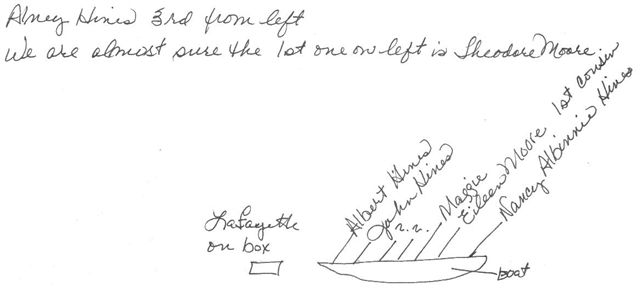 Almey Hines 3rd from left
We are almost sure the 1st one on left is Theodore Moore.
Albert Hines
John Hines
? ?
Maggie
Eileen Moore 1st cousin
Nancy Albinnie Hines
LaFayette
on box
boat